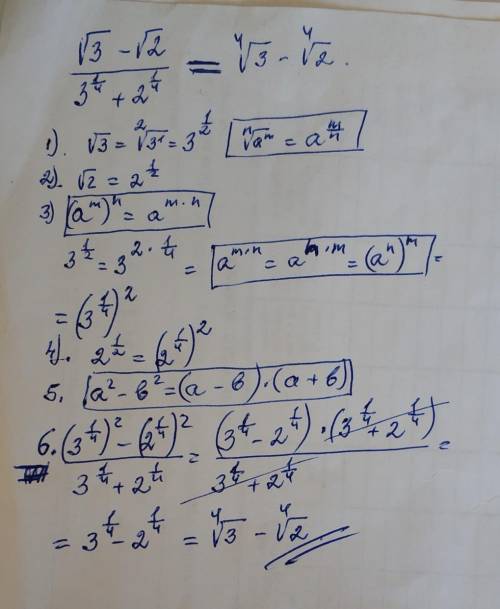 (√3 − √2)/(3^(1/4) + 2^(1/4)) = ⁴√3 − ⁴√2.
1). √3 = ²√3¹ = 3^(1/2) ⁿ√aᵐ = a^(m/n)
2). √2 = 2^(1/2)
3) (aᵐ)ⁿ = a^(m·n)
3^(1/2) = 3^(2·1/4) = a^(m·n) = a^(n·m) = (aⁿ)ᵐ =
= (3^(1/4))²
4). 2^(1/2) = (2^(1/4))²
5. a² − в² = (а − в)·(а + в)
6. ((3^(1/4))² − (2^(1/4))²)/(3^(1/4) + 2^(1/4)) = ((3^(1/4) − 2^(1/4))·(3^(1/4) + 2^(1/4)))/(3^(1/4) + 2^(1/4)) =
= 3^(1/4) − 2^(1/4) = ⁴√3 − ⁴√2